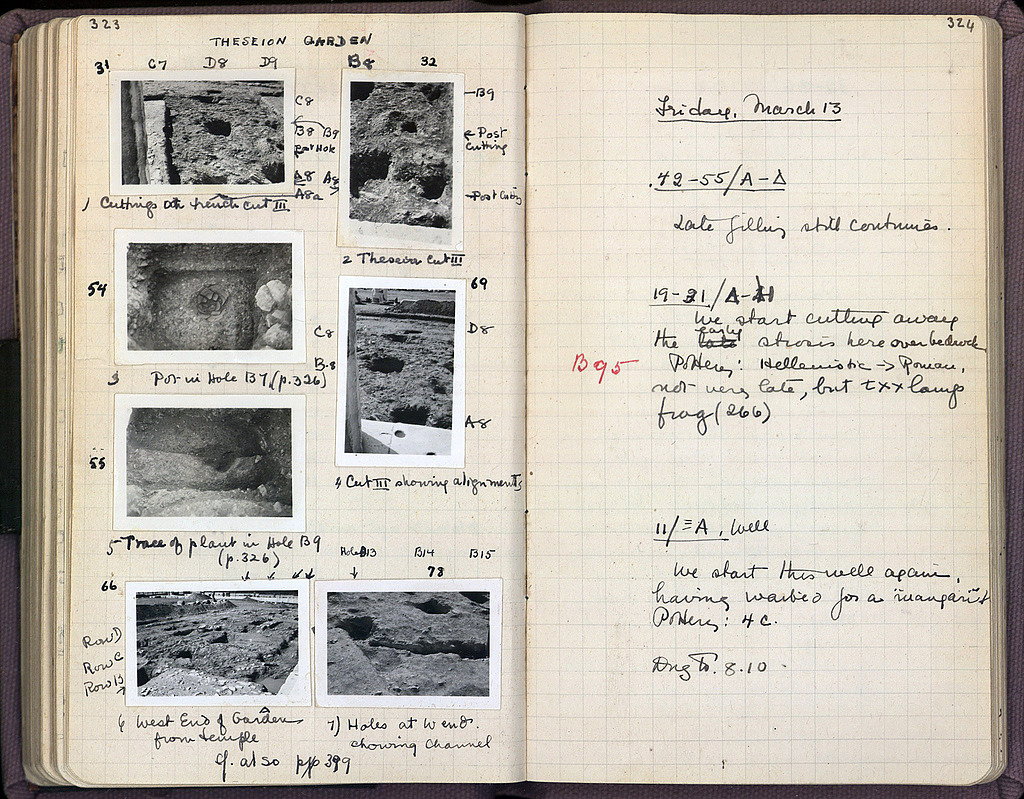 323
THESEION GARDEN
31 C7 D8 D9
C8
B8 B9
Post Hole
A8 A9
A8a
1 Cuttings in trench cut III
B8 32
B9
Post
Cutting
Post Cutting
2 Theseion Cut III
54
3 Pot in Hole B7 (p.326)
69
C8
B8
D8
A8
4 Cut III showing alignments
55
5 Trace of plant in Hole B9
(p.326)
66
Row D
Row C
Row B
6 West End of Garden
from temple
Hole B13 B14 B15
73
7) Holes at W end
showing channel
cf. also pp 399
324
Friday, March 13
42-55/A-Δ
Late filling still continues.
19-21/Δ-
We start cutting away
the early strosis here over bedrock
B95
Pottery: Hellenistic → Roman,
not very late, but txx lamp
frag (266)
11/ΞA, Well
We start this well again,
having waited for a "manganist"
Pottery: 4 c.
Dug to. 8.10.